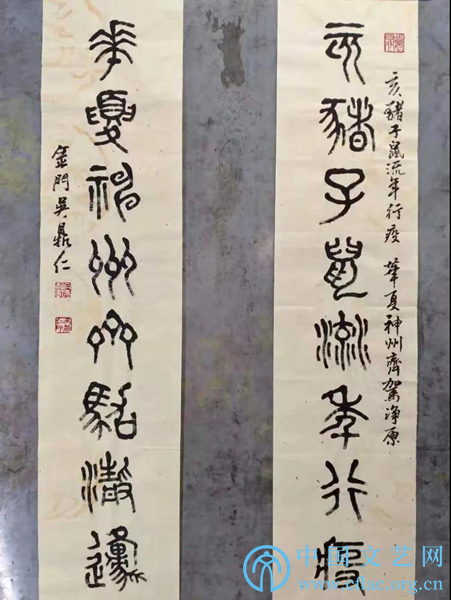 亥豬子鼠流年行疫 華夏神州齊駕淨原
亥豬子鼠流年行疫
華夏神州齊駕淨原
金門吳鼎仁
中国文艺网
www.cflac.org.cn